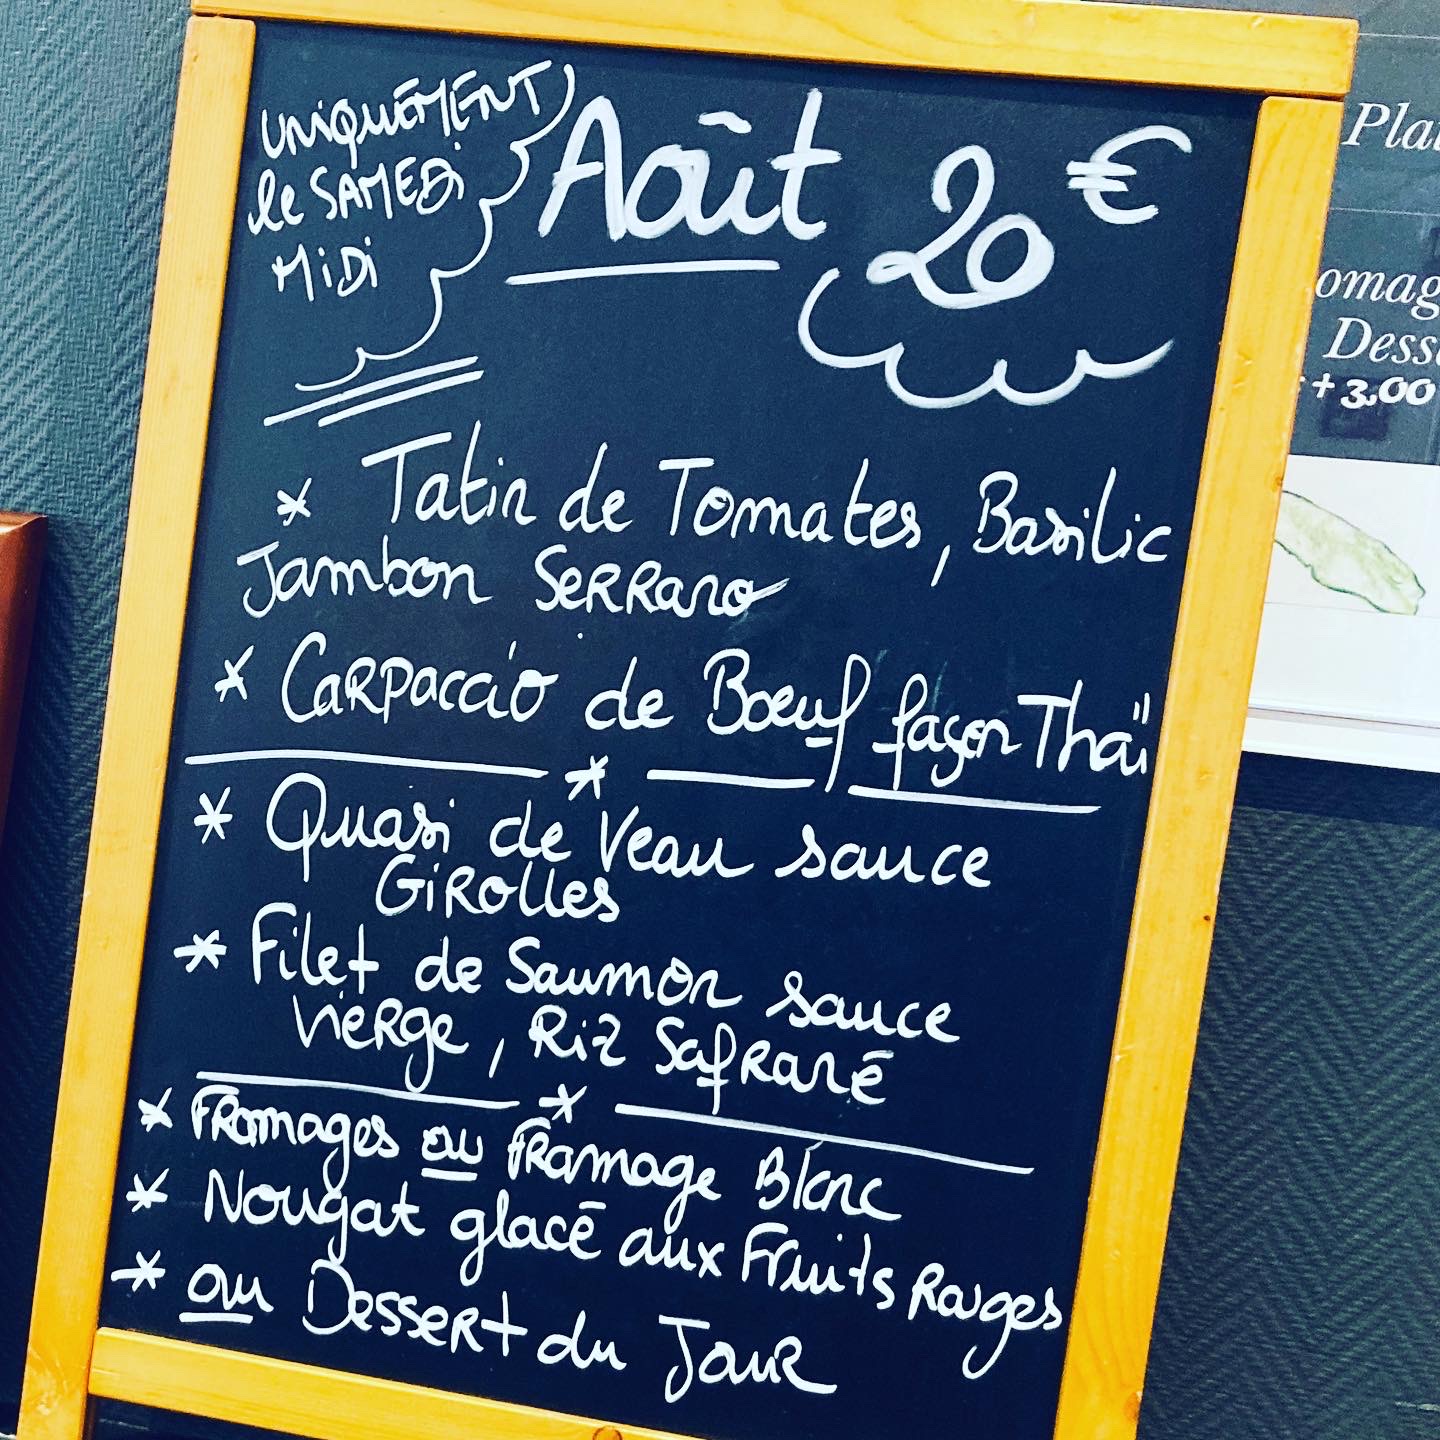 UNIQUEMENT
le SAMEDI
MIDI
Août 20 €
* Tatin de Tomates, Basilic
Jambon Serrano
* Carpaccio de Boeuf façon Thaï
*
* Quasi de Veau sauce
Girolles
* Filet de Saumon sauce
Vierge, Riz Safrané
*
* Fromages ou Fromage Blanc
* Nougat glacé aux Fruits Rouges
* ou Dessert du Jour
+ 3,00